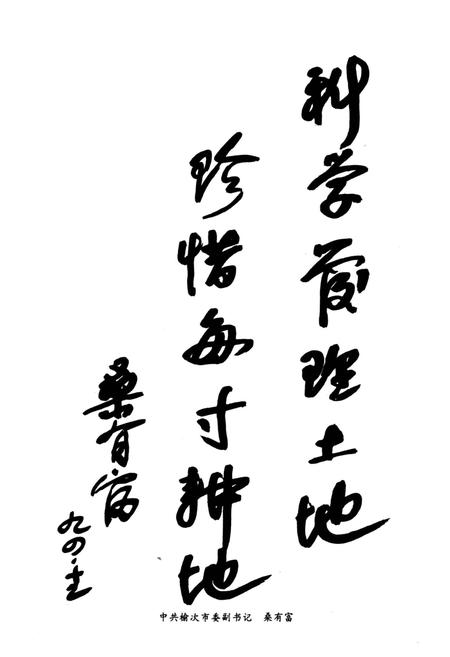 科学管理土地
珍惜每寸耕地
桑有富
九四·
中共榆次市委副书记 桑有富